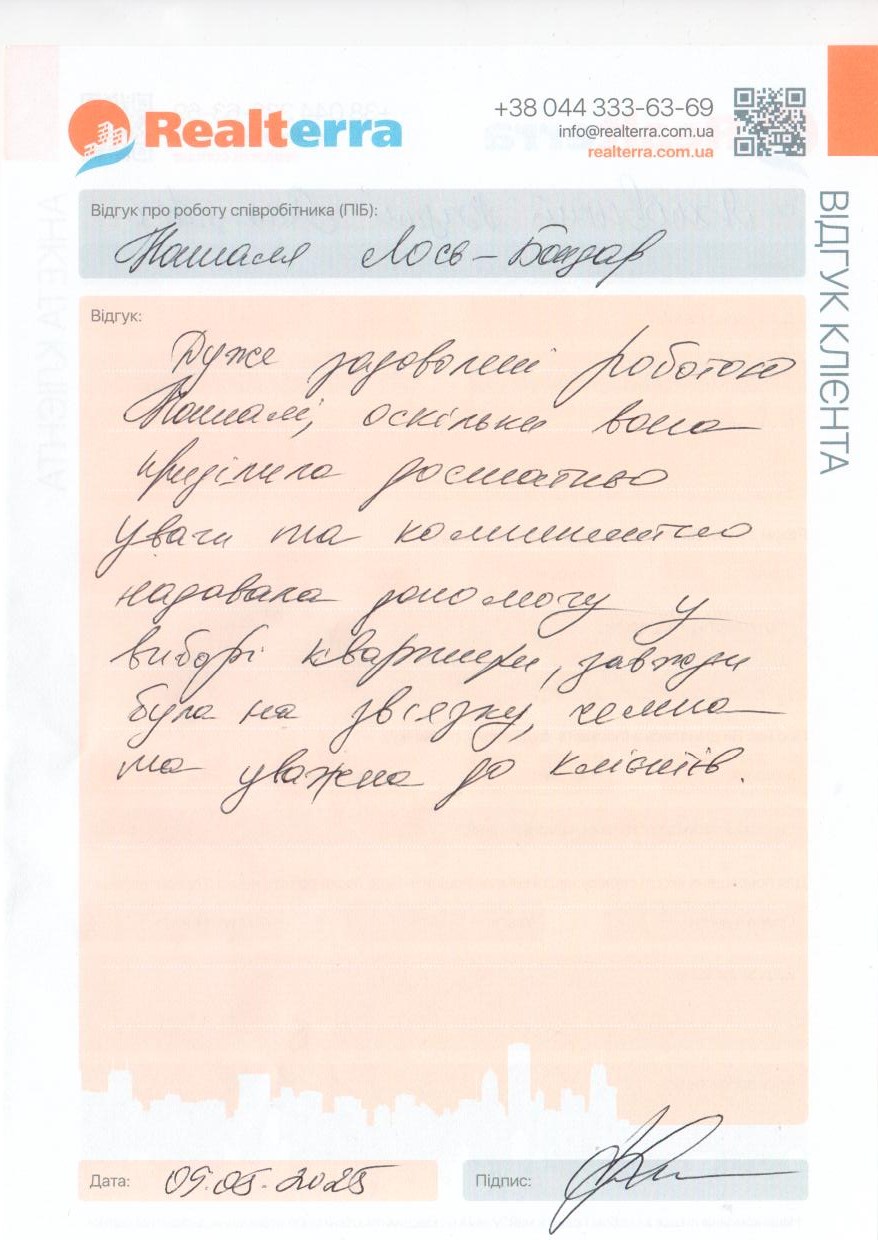 Realterra
+38 044 333-63-69
info@realterra.com.ua
realterra.com.ua
ВІДГУК КЛІЄНТА
Відгук про роботу співробітника (ПІБ):
Наталя Лось-Бондар
Відгук:
Дуже задоволені роботою
Наталі, оскільки вона
приділила достатньо
уваги та компетентно
надавала допомогу у
виборі квартири, завжди
була на зв'язку, чемна
та уважна до клієнтів.
Дата: 09.05.2025
Підпис: